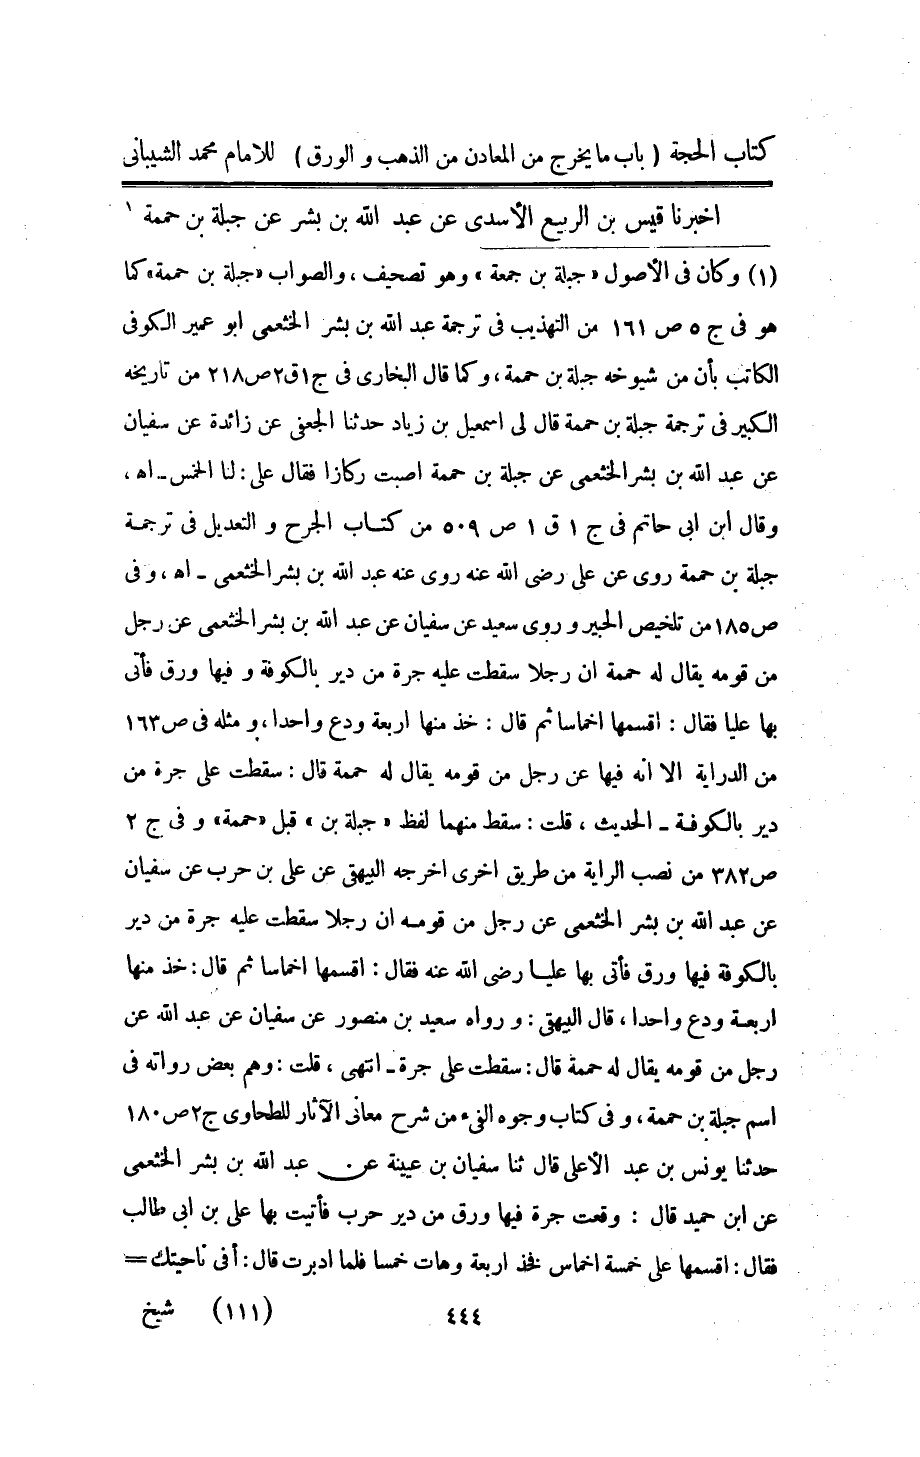 كتاب الحجة ( باب ما يخرج من المعادن من الذهب و الورق ) للامام محمد الشيبانى
اخبرنا قيس بن الربيع الأسدى عن عبد الله بن بشر عن جبلة بن حممة ١
(١) وكان فى الاصول «جبلة بن جمعة» وهو تصحيف ، والصواب «جبلة بن حممة» كما
هو فى ج ٥ ص ١٦١ من التهذيب فى ترجمة عبد الله بن بشر الخثعمى ابو عمير الكوفى
الكاتب بأن من شيوخه جبلة بن حممة ، وكما قال البخارى فى ج١ق٢ص٢١٨ من تاريخه
الكبير فى ترجمة جبلة بن حممة قال لى اسمعيل بن زياد حدثنا الجعفى عن زائدة عن سفيان
عن عبد الله بن بشر الخثعمى عن جبلة بن حممة اصبت ركازا فقال على : لنا الخمس ـ اه ،
وقال ابن ابى حاتم فى ج ١ ق ١ ص ٥٠٩ من كتاب الجرح و التعديل فى ترجمة
جبلة بن حممة روى عن على رضى الله عنه روى عنه عبد الله بن بشر الخثعمى ـ اه ، و فى
ص١٨٥ من تلخيص الحبير و روى سعيد عن سفيان عن عبد الله بن بشر الخثعمى عن رجل
من قومه يقال له حممة ان رجلا سقطت عليه جرة من دير بالكوفة و فيها ورق فأتى
بها عليا فقال : اقسمها اخماسا ثم قال : خذ منها اربعة ودع واحدا ، و مثله فى ص١٦٣
من الدراية الا انه فيها عن رجل من قومه يقال له حممة قال : سقطت على جرة من
دير بالكوفة ـ الحديث ، قلت : سقط منهما لفظ « جبلة بن » قبل «حممة» و فى ج ٢
ص٣٨٢ من نصب الراية من طريق اخرى اخرجه البيهقى عن على بن حرب عن سفيان
عن عبد الله بن بشر الخثعمى عن رجل من قومه ان رجلا سقطت عليه جرة من دير
بالكوفة فيها ورق فأتى بها عليا رضى الله عنه فقال : اقسمها اخماسا ثم قال : خذ منها
اربعة ودع واحدا ، قال البيهقى : و رواه سعيد بن منصور عن سفيان عن عبد الله عن
رجل من قومه يقال له حممة قال : سقطت على جرة ـ انتهى ، قلت : وهم بعض رواته فى
اسم جبلة بن حممة ، و فى كتاب وجوه الفىء من شرح معانى الآثار للطحاوى ج٢ص١٨٠
حدثنا يونس بن عبد الأعلى قال ثنا سفيان بن عيينة عن عبد الله بن بشر الخثعمى
عن ابن حميد قال : وقعت جرة فيها ورق من دير حرب فأتيت بها على بن ابى طالب
فقال : اقسمها على خمسة اخماس فخذ اربعة وهات خمسا فلما ادبرت قال : أفى ناحيتك =
٤٤٤ (١١١) شيخ